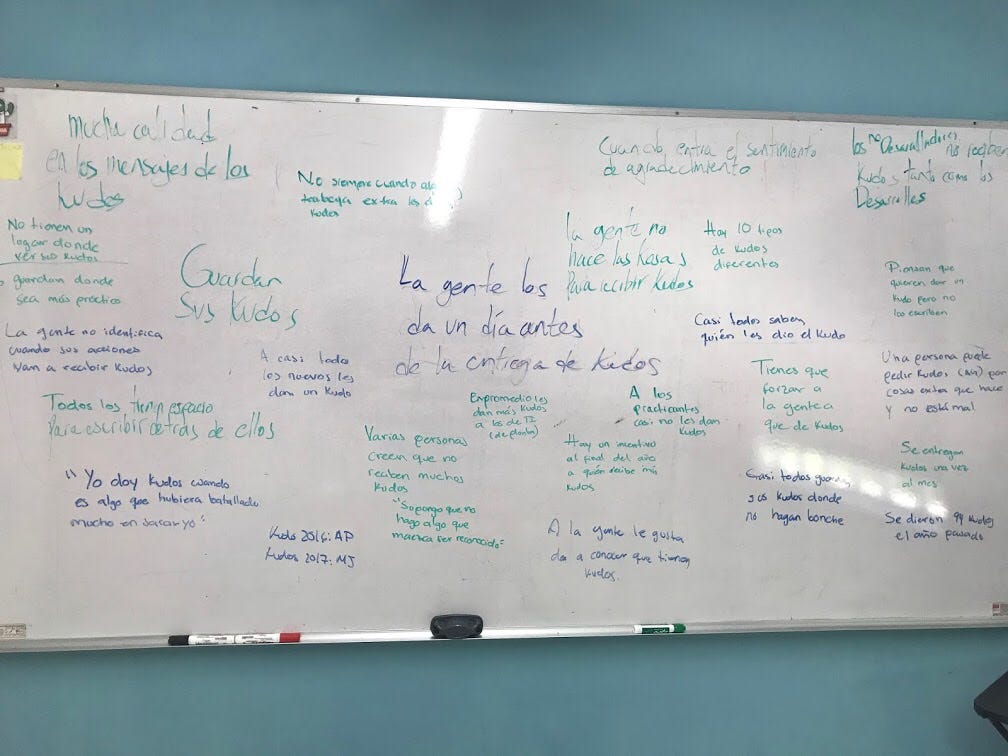 Mucha calidad
en los mensajes de los
kudos
No tienen un
lugar donde
ver sus kudos
guardan donde
sea más práctico
La gente no identifica
cuando sus acciones
van a recibir Kudos
Todos los tienen espacio
Para escribir detrás de ellos
"Yo doy kudos cuando
es algo que hubiera batallado
mucho en sacar yo"
No siempre cuando
trabaja extra les
kudos
Guardar
Sus Kudos
A casi todo
los nuevos les
dan un Kudo
Kudo 2016: AP
Kudos 2017: MJ
La gente los
da un día antes
de la entrega de kudos
Varias personas
creen que no
reciben muchos
Kudos
"Supongo que no
hago algo que
merezca ser reconocido"
En promedio les
dan más kudos
a los de TI
(de planta)
Cuando entra el sentimiento
de agradecimiento
la gente no
hace las kosas
Para recibir Kudos
Hay 10 tipos
de kudos
diferentes
Casi todos saben
quién les dio el kudo
A los
practicantes
casi no les dan
kudos
Hay un incentivo
al final del año
a quién recibe más
kudos
A la gente le gusta
da a conocer que tienen
kudos.
Tienes que
forzar a
la gente a
que de Kudos
Casi todos
sus kudos donde
no hagan bonche
los no Desarrolladores no reciben
Kudos tanto como los
Piensan que
quieren dar un
kudo pero no
los escriben
Una persona puede
pedir Kudos por
cosas extra que hace
y no está mal
Se entregan
kudos una vez
al mes
Se dieron 94 kudos
el año pasado